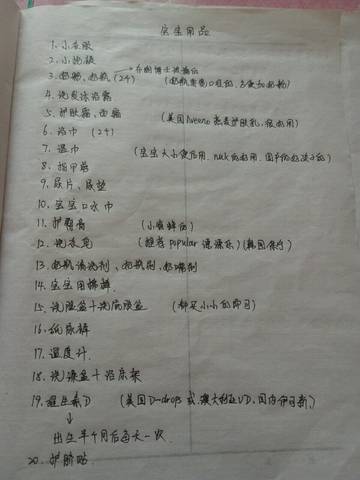 宝宝用品
1. 小衣服
2. 小抱被
3. 奶粉、奶瓶(2个) → 布朗博士玻璃的
(奶瓶要宽口径的,方便加奶粉)
4. 洗发沐浴露
5. 护肤霜、面霜 (美国Aveeno燕麦护肤乳,很好用)
6. 浴巾 (2个)
7. 湿巾 (宝宝大小便后用,nuk的好用,国产的
8. 指甲剪
9. 尿片、尿垫
10. 宝宝口水巾
11. 护臀膏 (小蜜蜂的)
12. 洗衣皂 (推荐 popular 泡泡乐)(韩国保宁)
13. 奶瓶清洗剂、奶瓶刷、奶嘴刷
14. 宝宝用棉棒
15. 洗脸盆+洗屁屁盆 (都买小小的即可)
16. 纸尿裤
17. 温度计
18. 洗澡盆+浴床架
19. 维生素D (美国D-drops或澳大利亚VD,国内伊可新)
↓
出生半个月后每天一次
20. 护脐贴